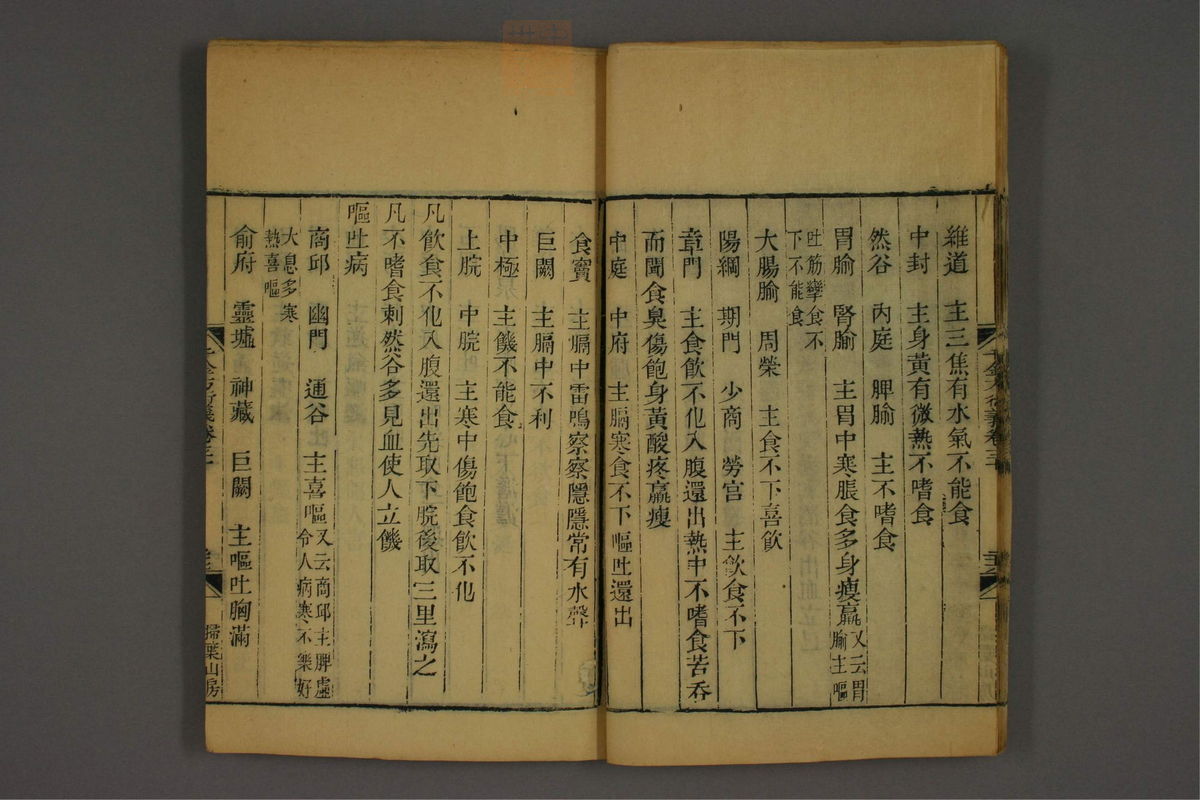 維道 主三焦有水氣不能食
中封 主身黃有微熱不嗜食
然谷 內庭 脾腧 主不嗜食
胃腧 腎腧 主胃中寒脹食多身瘦羸又云胃腧主嘔
吐筋攣食不
下不能食
大腸腧 周榮 主食不下喜飲
陽綱 期門 少商 勞宮 主飲食不下
章門 主食飲不化入腹還出熱中不嗜食苦吞
而聞食臭傷飽身黃酸疼羸瘦
中庭 中府 主膈寒食不下嘔吐還出
食竇 主膈中雷鳴察察隱隱常有水聲
巨闕 主膈中不利
中極 主饑不能食
上脘 中脘 主寒中傷飽食飲不化
凡飲食不化入腹還出先取下脘後取三里瀉之
凡不嗜食刺然谷多見血使人立饑
嘔吐病
商邱 幽門 通谷 主喜嘔又云商邱主脾虛
令人病寒不樂好
大息多寒
熱喜嘔
俞府 靈墟 神藏 巨闕 主嘔吐胸滿
千金方衍義卷三十
掃葉山房